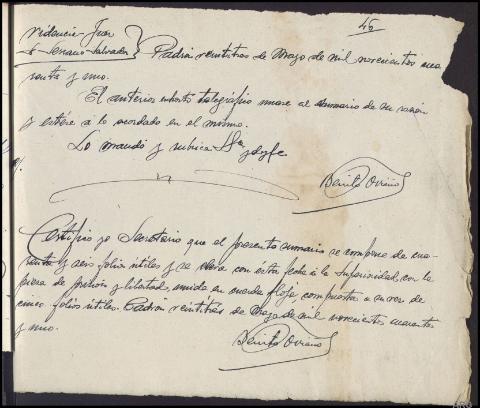 46
videncia-Juez
Sr Serrano Salvador } Padrón veintitres de Mayo de mil novecientos cua
renta y uno.
El anterior exhorto telegráfico unase al sumario de su razón
y estése a lo acordado en el mismo.
Lo mandó y rubrica Sª y doy fe
Benito Oviaño
Certifico yo Secretario que el presente sumario se compone de cua-
renta y seis folios útiles y se eleva con ésta fecha á la Superioridad con la
pieza de prisión y libertad, unida en cuerda floja compuesta a su vez de
cinco folios útiles. Padrón veintitres de Mayo de mil novecientos cuarenta
y uno.
Benito Oviaño